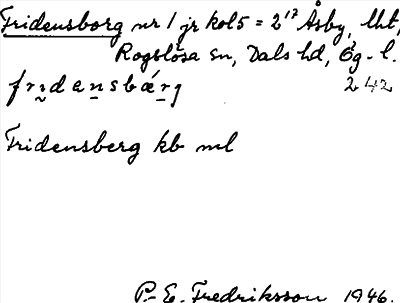 Fridensborg nr 1 jr kol 5 = 2¹⁷ Åsby, lht,
Rogslösa sn, Dals hd, Ög. l.
242
Fridensberg kb ml
P.-E. Fredriksson 1946.